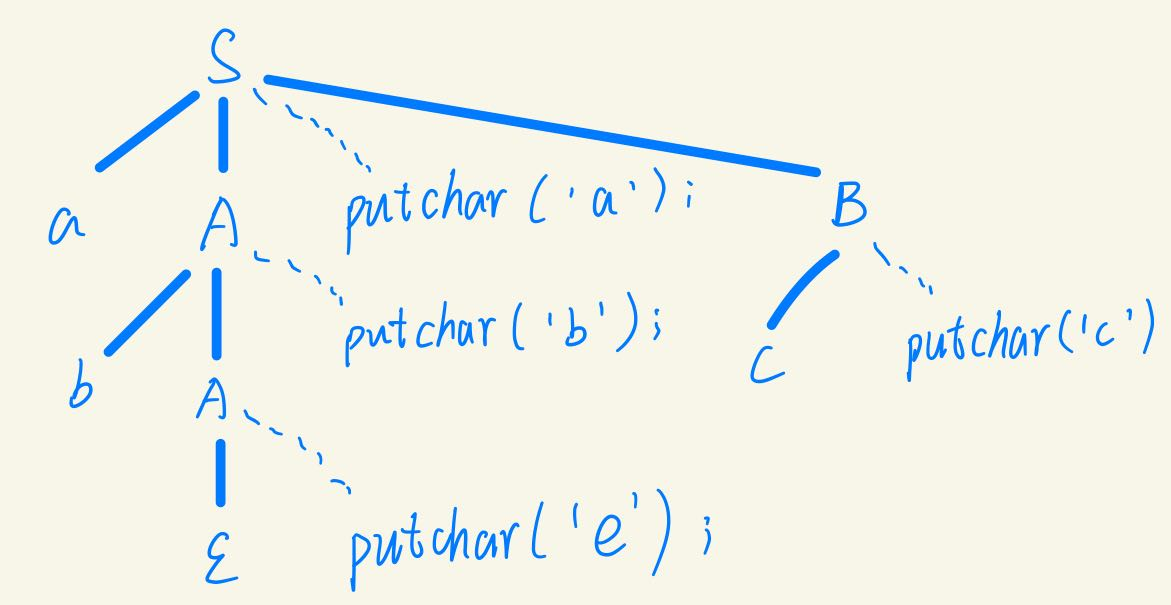 S
a A putchar('a'); B
b putchar('b'); C putchar('c')
A
ε putchar('e');